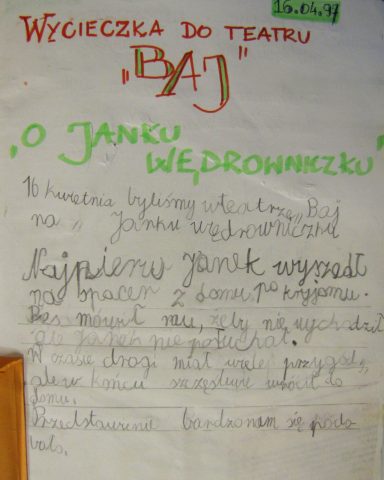 16.04.97
WYCIECZKA DO TEATRU
„BAJ"
„O JANKU
WĘDROWNICZKU"
16 kwietnia byliśmy wteatrze „Baj
na „ Janku wędrowniczku
Najpierw Janek wyszedł
na spacer z domu po kryjomu.
mówił mu, żeby nie wychodził
ale Janek nie posłuchał.
W czasie drogi miał wiele przygód„
ale w końcu szczęśliwie wrócił do
domu.
Przedstawienie bardzonam się podo
bało.